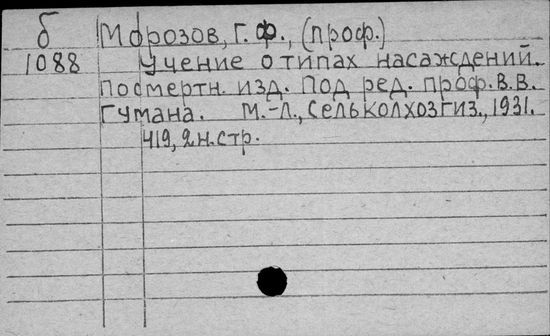 б Морозов, Г. Ф., (проф.)
1088 Учение о типах насаждений.
Посмертн. изд. Под ред. проф. В. В.
Гумана. М.-Л., Сельколхозгиз., 1931.
419, 2 н. стр.